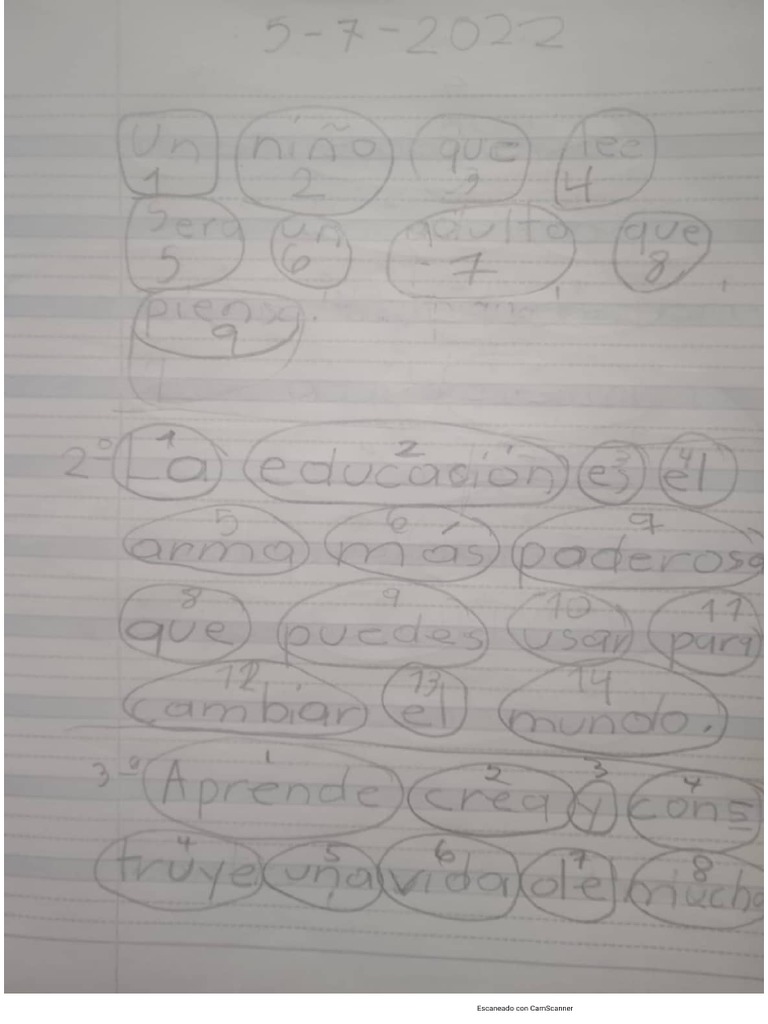 5-7-2022
Un niño que lee
1 2 2 4
Sera un adulto que
5 6 7 8
piensa.
9
1 2 3 4
2º La educación es el
5 6 7
arma más poderosa
8 9 10 11
que puedes usar para
12 13 14
cambiar el mundo.
1 2 3 4
3º Aprende crea y cons
4 5 6 7 8
truye una vida de mucho
Escaneado con CamScanner